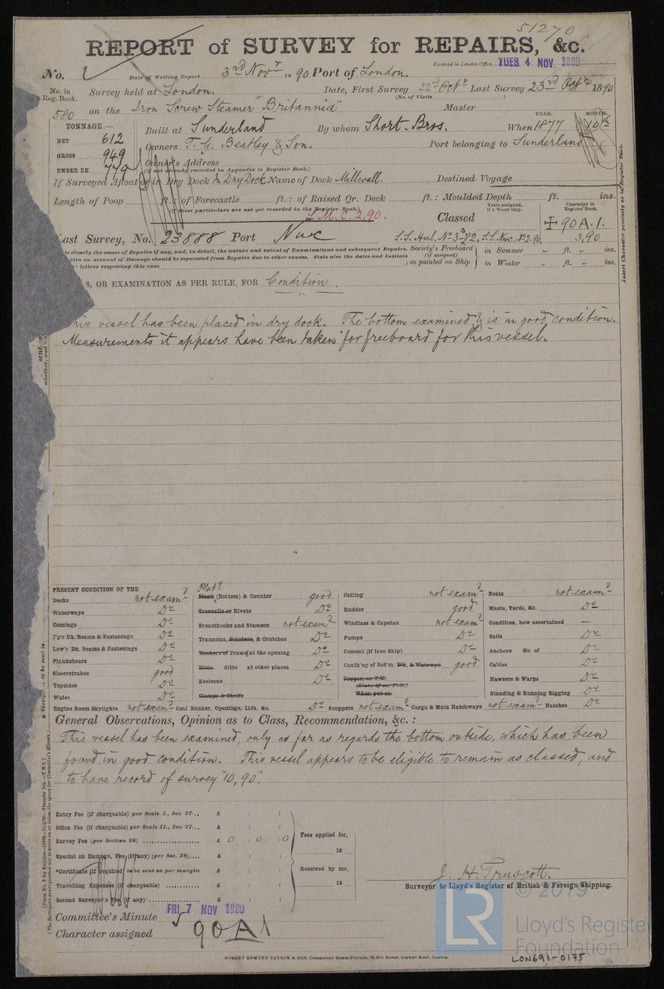 51270
REPORT of SURVEY for REPAIRS, &c.
Received in London Office, TUES 4 NOV 1890
No. Date of Writing Report 3rd Novr 1890 Port of London.
No. in Reg. Book. Survey held at London. Date, First Survey 22nd Octr Last Survey 23rd Octr 1890
(No. of Visits
580 on the Iron Screw Steamer "Britannia" Master
TONNAGE— YEAR. MONTH.
NET 612 Built at Sunderland By whom Short Bros. When 1877 10
GROSS 949 Owners T. G. Beatley & Son. Port belonging to Sunderland
UNDER DK. 779 Owner's Address
(If not already recorded in Appendix to Register Book.)
If Surveyed Afloat or in Dry Dock In Dry Dock Name of Dock Millwall. Destined Voyage
Length of Poop ft.: of Forecastle ft.: of Raised Qr. Deck ft.: Moulded Depth ft. ins.
(If these particulars are not yet recorded in the Register Book.)
L.M.C. 2,90. Classed Years assigned, if a Wood Ship. Character in Register Book.
90.A.1.
3,90
ast Survey, No. 23888 Port Nwc S.S. Nwc. No 2-90
Society's Freeboard (if assigned) as painted on Ship in Summer - ft. - ins.
in Winter - ft. - ins.
letters respecting this case.
S, OR EXAMINATION AS PER RULE, FOR Condition.
his vessel has been placed in dry dock. The bottom examined & is in good condition.
Measurements it appears have been taken for freeboard for this vessel.
PRESENT CONDITION OF THE
Decks not exam'd
Waterways Do
Comings Do
Up'r Dk. Beams & Fastenings Do
Low'r Dk. Beams & Fastenings Do
Planksheers Do
Sheerstrakes good
Topsides Do
Wales Do
Engine Room Skylights not exam'd
Plat'g
Plank (Bottom) & Counter good
Treenails or Rivets Do
Breasthooks and Stemson not exam'd
Transoms, Pointers, & Crutches Do
Timbers of Frame at the opening Do
Ditto. ditto at other places Do
Keelsons Do
Clamps & Shelfs
Coal Bunker, Openings, Lids, &c. Do
Ceiling not exam'd
Rudder good
Windlass & Capstan not exam'd
Pumps Do
Cement (if Iron Ship) Do
Caulk'ng of Bot'm, Dk, & Waterways good
Copper, or Y.M.
When put on
Scuppers not exam'd Cargo & Main Hatchways not exam'd
Boats not exam'd
Masts, Yards, &c. Do
Condition, how ascertained —
Sails Do
Anchors No. of Do
Cables Do
Hawsers & Warps Do
Standing & Running Rigging Do
Hatches Do
General Observations, Opinion as to Class, Recommendation, &c. :
This vessel has been examined, only as far as regards the bottom outside, which has been
found in good condition. This vessel appears to be eligible to remain as classed, and
to have record of survey "10,90".
Entry Fee (if chargeable) per Scale I., Sec. 27... £ : :
Office Fee (if chargeable) per Scale II., Sec. 27... £ : :
Survey Fee (per Section 28) £ 0 : 0 : 0 Fees applied for, 18
Special on Damage, Fee (if any) (per Sec. 28)... £ : :
*Certificate (if required) to be sent as per margin £ : : Received by me,
Travelling Expenses (if chargeable) £ : : 18
Second Surveyor's Fee (if any) £ : :
J. H. Truscott.
Surveyor to Lloyd's Register of British & Foreign Shipping.
Committee's Minute FRI. 7 NOV 1890
Character assigned 90A1
ROBERT EDMUND TAYLOR & SON
LON691-0175
© 2019
LR
Lloyd's Register
Foundation